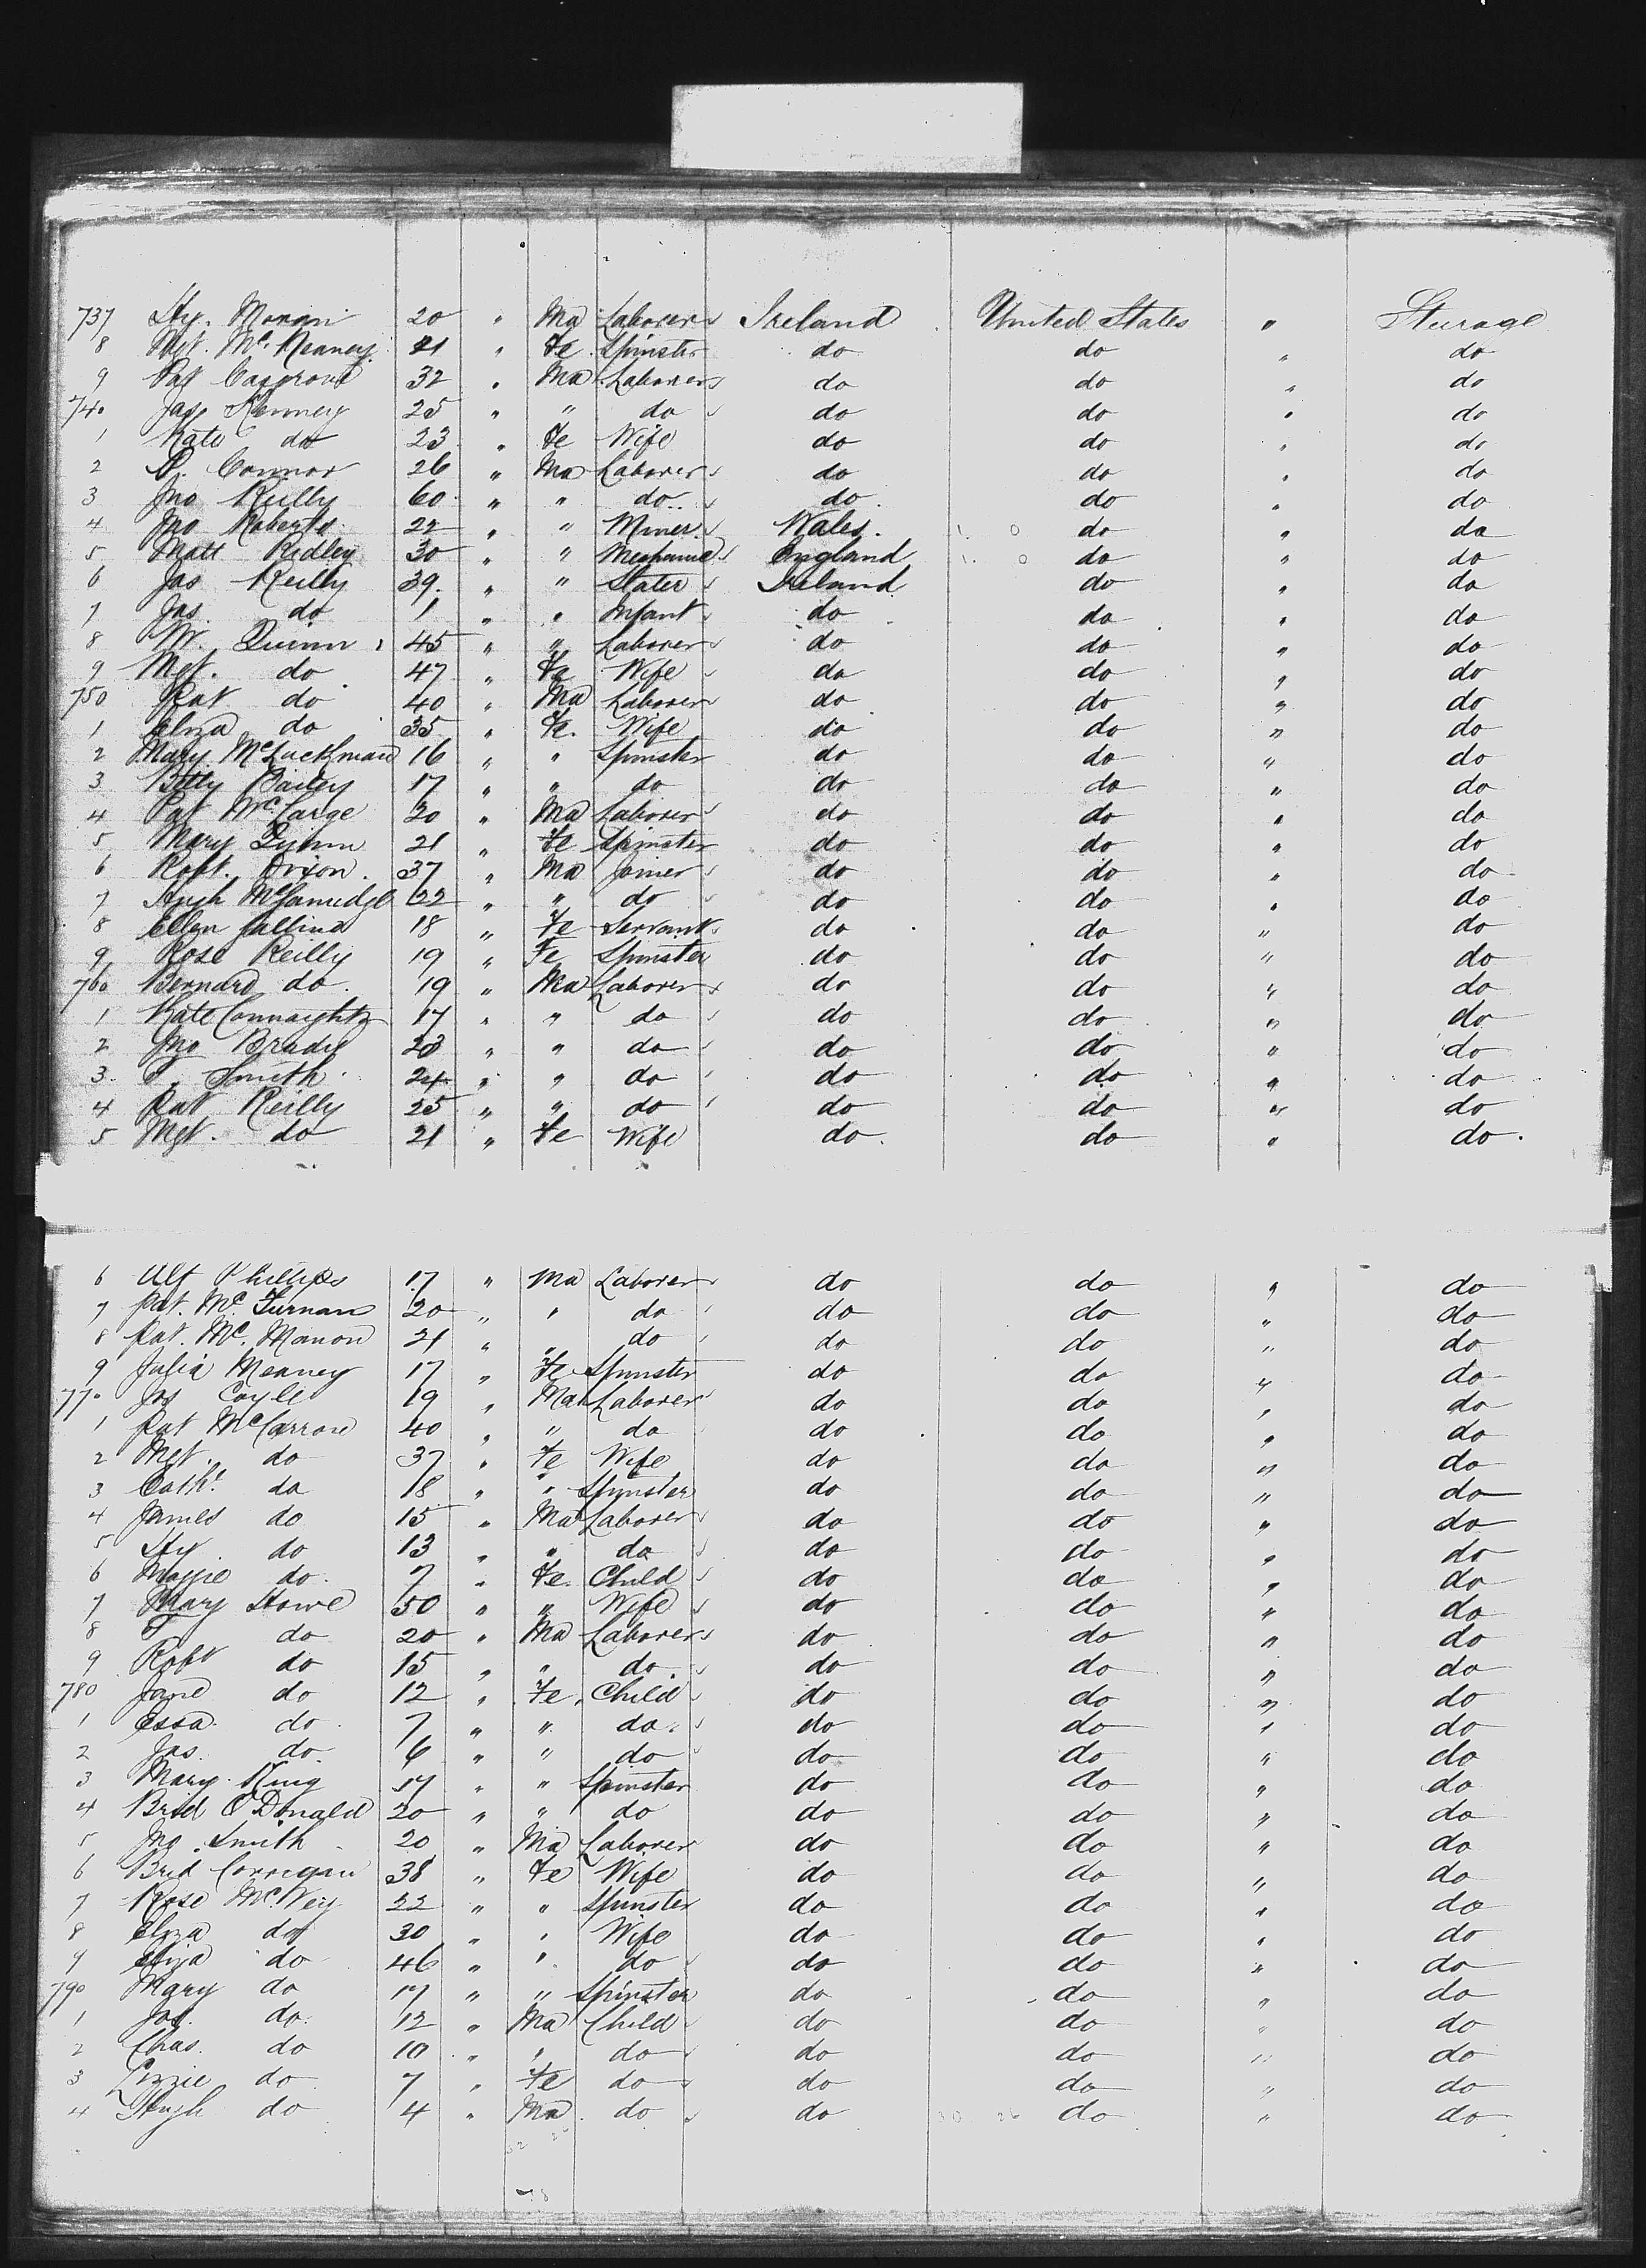 737 Hy. Moran 20 " Ma Laborer Ireland United States " Steerage
8 Mgt. Mc. Keaney 21 " Fe Spinster do do " do
9 Pat Cosgrove 32 " Ma Laborer do do " do
740 Jas Kenney 25 " " do do do " do
1 Kate do 23 " Fe Wife do do " do
2 P. Connor 26 " Ma Laborer do do " do
3 Jno Reilly 60 " " do do do " do
4 Jno Roberts 22 " " Miner Wales. do " do
5 Matt Ridley 30 " " Mechanic England do " do
6 Jas Reilly 39 " " Slater Ireland do " do
7 Jas. do 1 " " Infant do do " do
8 W. Quinn 45 " " Laborer do do " do
9 Mgt. do 47 " Fe Wife do do " do
750 Pat do 40 " Ma Laborer do do " do
1 Eliza do 35 " Fe. Wife do do " do
2 Mary 16 " " Spinster do do " do
3 Betty Bailey 17 " " do do do " do
4 Pat 20 " Ma Laborer do do " do
5 Mary 21 " Fe Spinster do do " do
6 Robt. Dixon 37 " Ma Joiner do do " do
7 Hugh 22 " " do do do " do
8 Ellen 18 " Fe Servant do do " do
9 Rose Reilly 19 " Fe Spinster do do " do
760 Bernard do 19 " Ma Laborer do do " do
1 Kate 17 " " do do do " do
2 Jno Brady 23 " " do do do " do
3 F. Smith 24 " " do do do " do
4 Pat Reilly 25 " " do do do " do
5 Mgt. do 21 " Fe Wife do do " do
6 Alf Phillips 17 " Ma Laborer do do " do
7 Pat. Mc. Turnan 20 " " do do do " do
8 Pat. Mc. Manon 21 " " do do do " do
9 Julia Meaney 17 " Fe Spinster do do " do
770 Jas Coyle 19 " Ma Laborer do do " do
1 Pat McCarron 40 " " do do do " do
2 Mgt. do 37 " Fe Wife do do " do
3 Cath. do 18 " " Spinster do do " do
4 James do 15 " Ma Laborer do do " do
5 Hy do 13 " " do do do " do
6 Maggie do 7 " Fe. Child do do " do
7 Mary Howe 50 " " Wife do do " do
8 F do 20 " Ma Laborer do do " do
9 Robt do 15 " " do do do " do
780 Jane do 12 " Fe. Child do do " do
1 Essa do 7 " " do do do " do
2 Jas. do 6 " " do do do " do
3 Mary King 17 " " Spinster do do " do
4 Brid O'Donald 20 " " do do do " do
5 Jno Smith 20 " Ma Laborer do do " do
6 Brid Corrigan 38 " Fe Wife do do " do
7 Rose McVey 22 " " Spinster do do " do
8 Eliza do 30 " " Wife do do " do
9 Eliza do 46 " " do do do " do
790 Mary do 17 " " Spinster do do " do
1 Jas. do 12 " Ma Child do do " do
2 Chas. do 10 " " do do do " do
3 Lizzie do 7 " Fe do do do " do
4 Hugh do 4 " Ma do do do " do